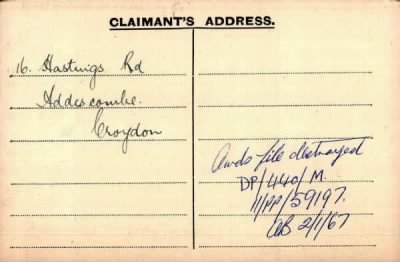 CLAIMANT'S ADDRESS.
16. Hastings Rd
Addescombe.
Croydon
Awds file destroyed
DP/440/M.
11/PP/59197.
AB 2/1/67